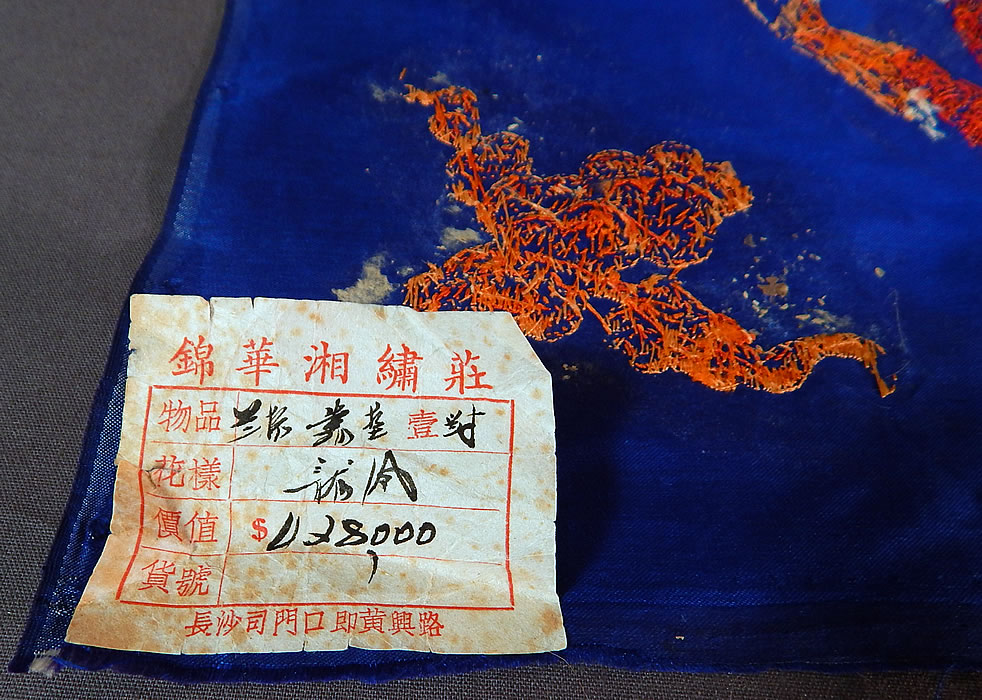 錦華湘繡莊
物品 壹對
花樣
價值 $428000
貨號
長沙司門口即黃興路